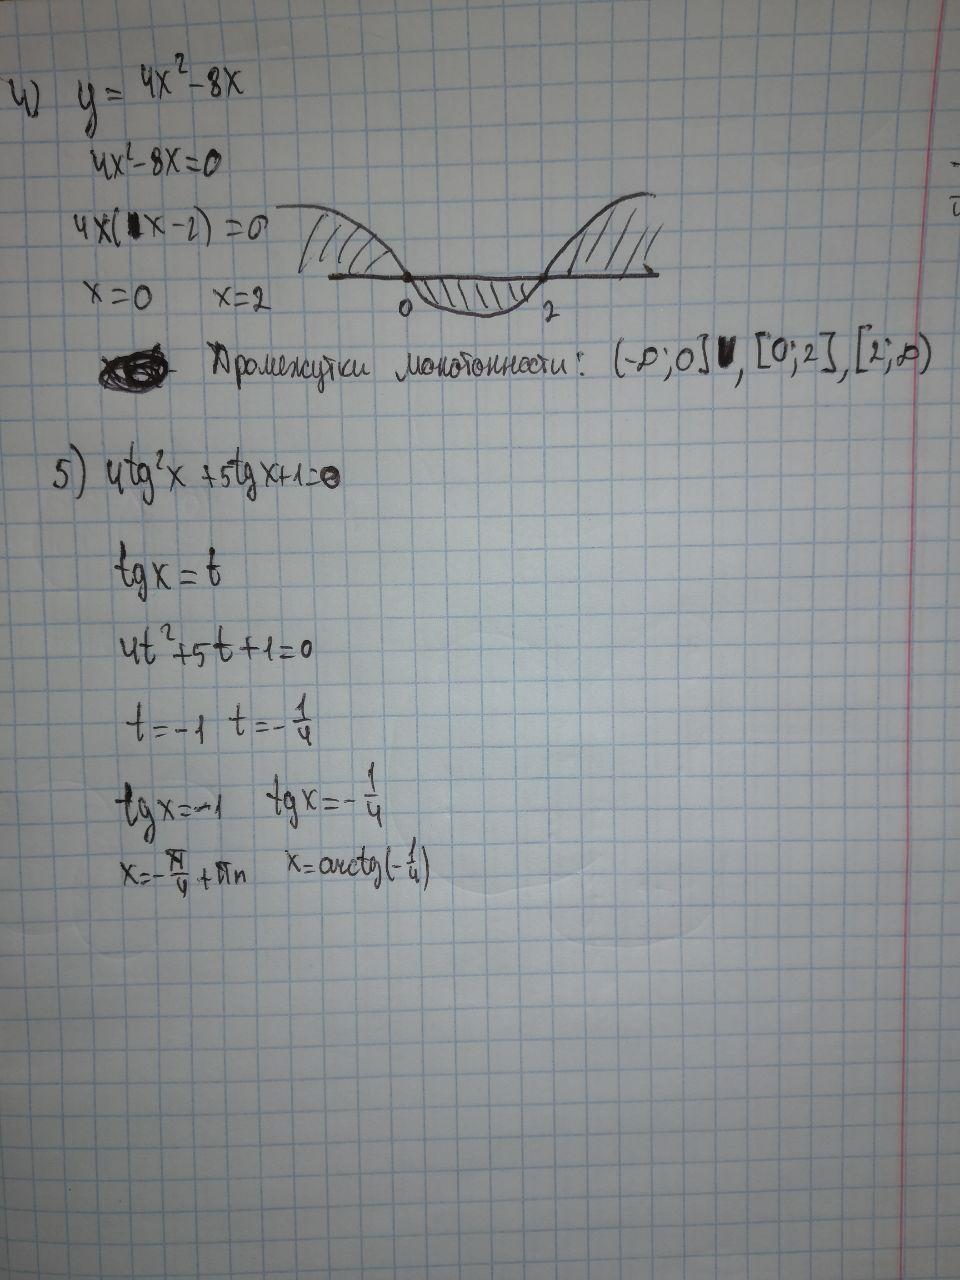 4) y = 4x² - 8x
4x² - 8x = 0
4x(x - 2) = 0
x = 0 x = 2
0 2
Промежутки монотонности: (-∞; 0], [0; 2], [2; ∞)
5) 4tg²x + 5tgx + 1 = 0
tgx = t
4t² + 5t + 1 = 0
t = -1 t = -1/4
tgx = -1 tgx = -1/4
x = -π/4 + πn x = arctg(-1/4)